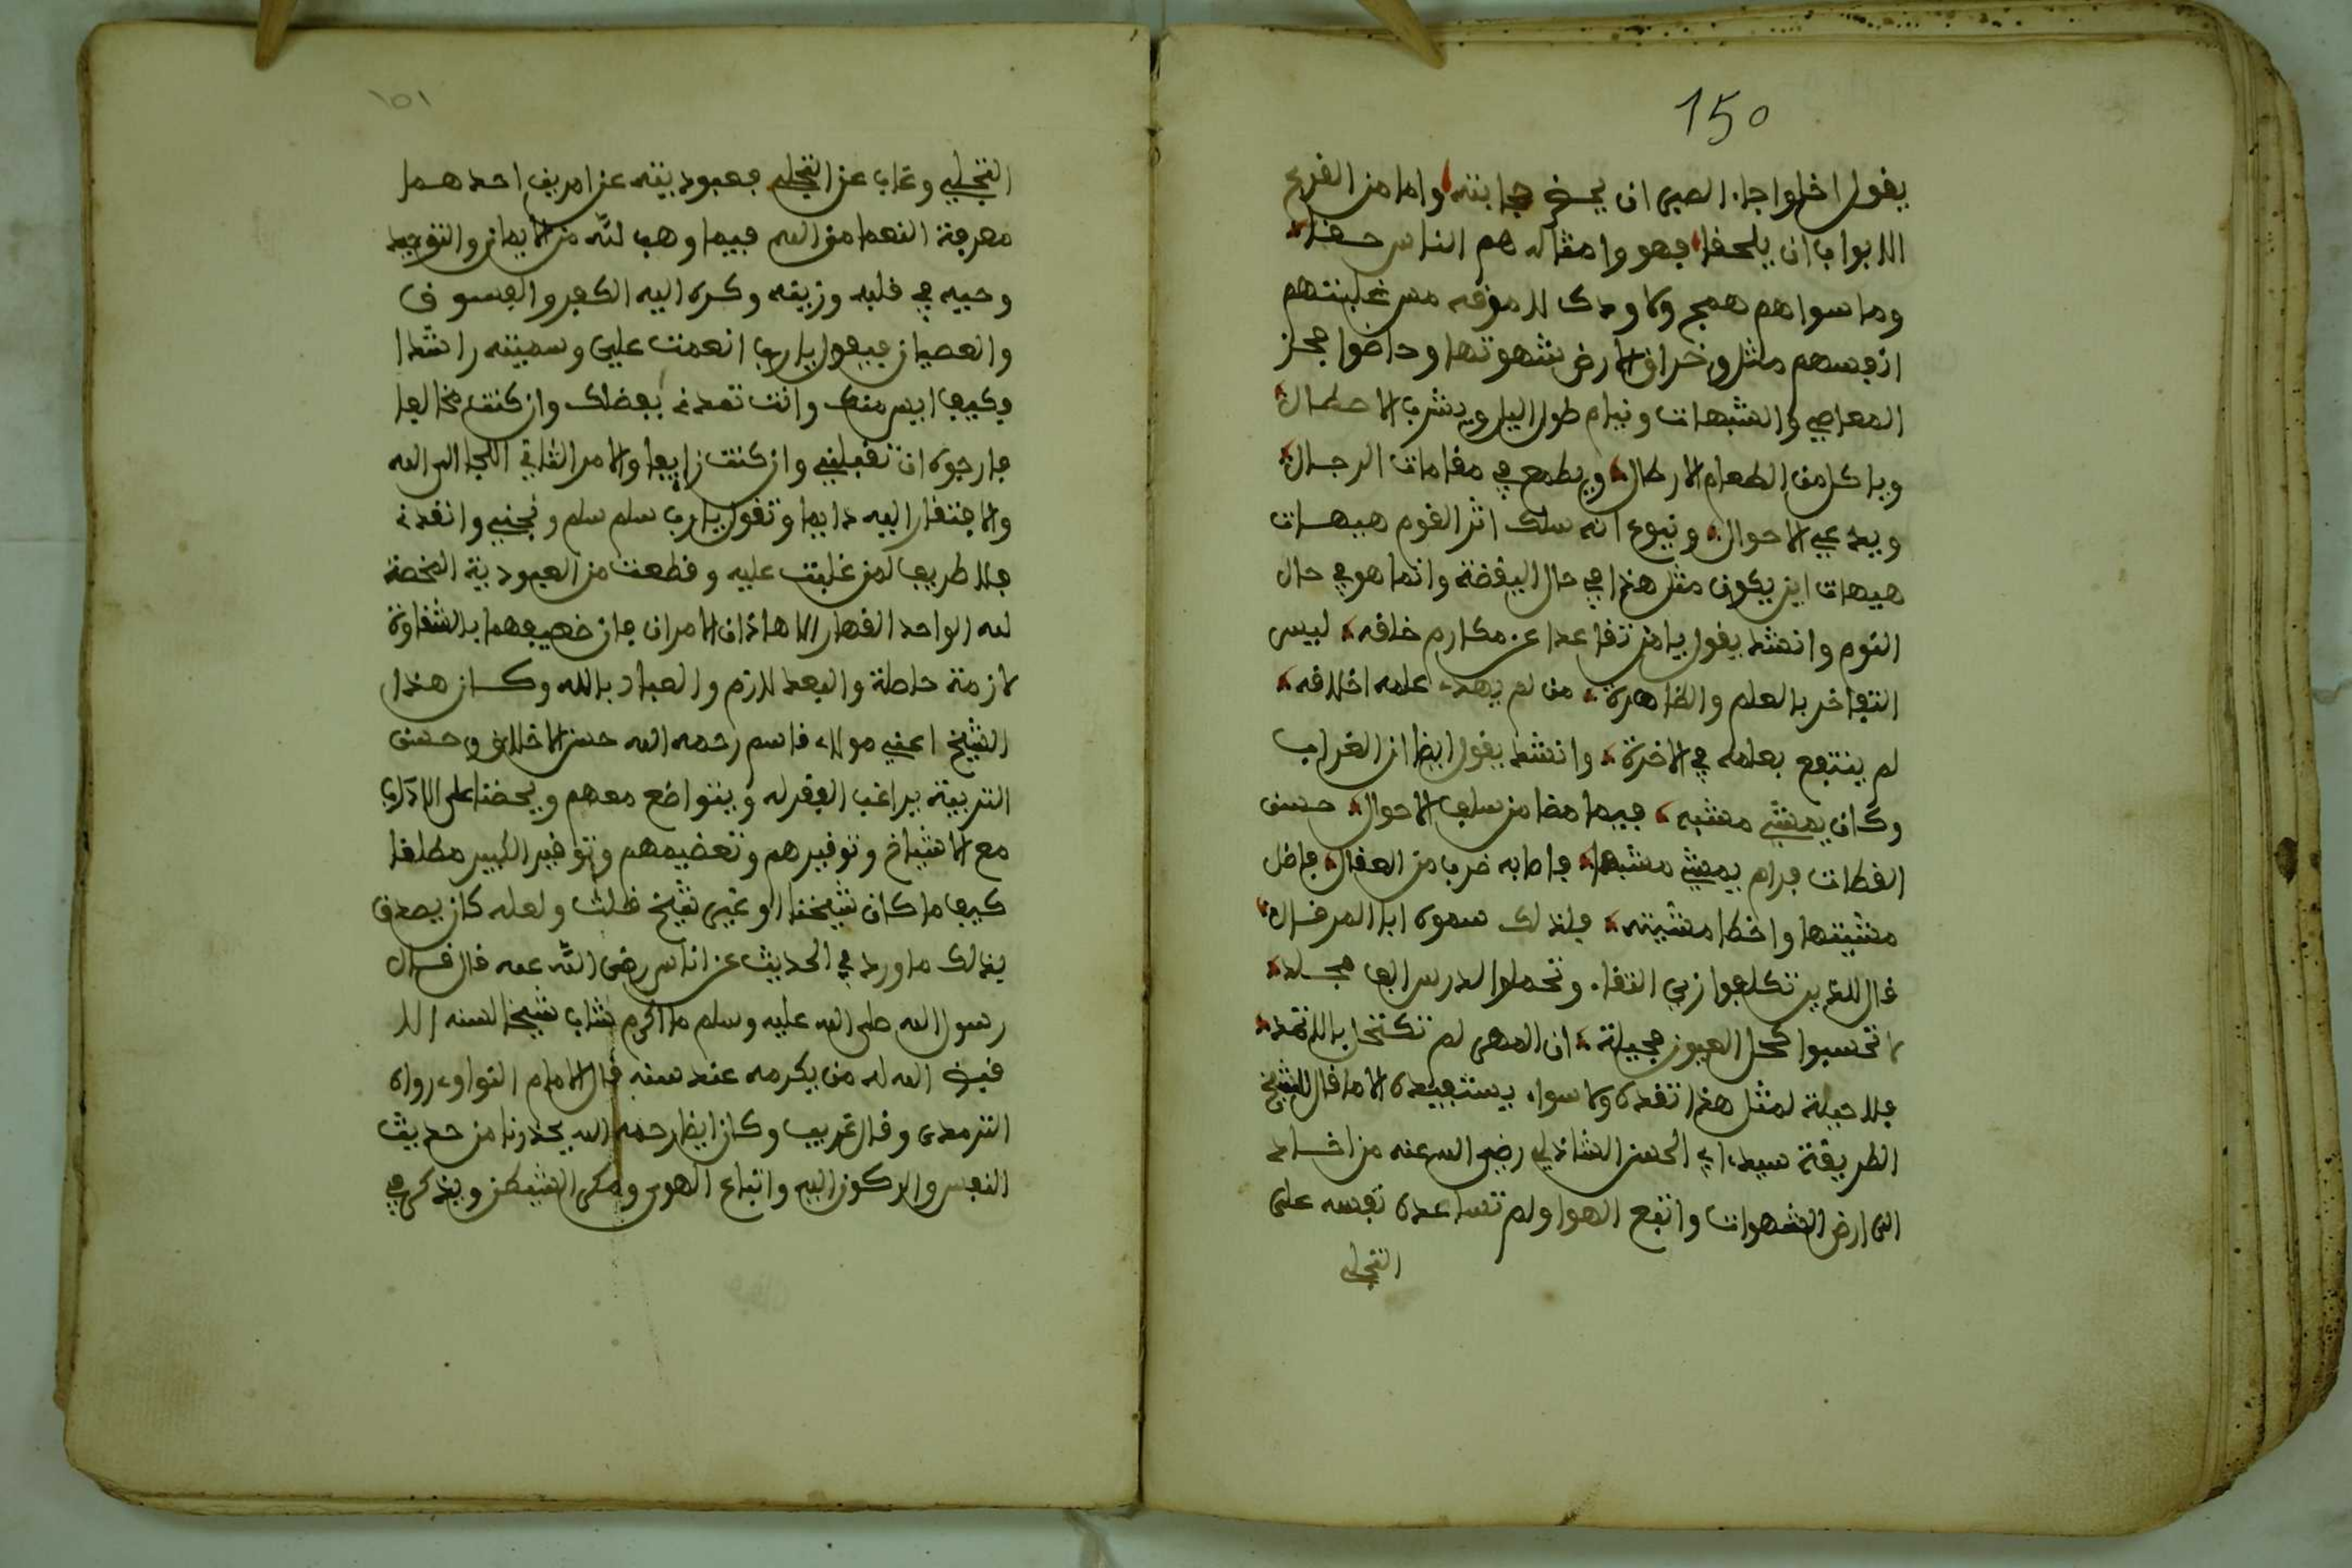 150
يقول اخلوا جاء الصبى ان يحسن جابته واما من القرع
الابواب ان يلحقا فهو وامثاله هم الناس حقا
وما سواهم همج ولا ودك للموقه من غلبتهم
انفسهم مثل وخراق الارض شهوتها وخاضوا بحر
المعاصي والشبهات وينام طول اليل ويشرب الاحطال
وياكل من الطعام الارطال ويطمع في مقامات الرجال
ويدعي الاحوال ويتوع انه سلك اثر القوم هيهات
هيهات اين يكون مثل هذا في حال اليقضة وانما هو في حال
النوم وانشد يقول يا من تقاعدا عن مكارم خلقه ليس
التفاخر بالعلم والظاهرة من لم يهدء علمه اخلاقه
لم ينتفع بعلمه في الاخرة وانشد يقول ايضا ان الغراب
وكان يمشي مشيه فيما مضا من سلف الاحوال حسن
القطات فرام يمشي مشيها فاصابه ضرب من العقال فاضل
مشيتها واخطا مشيته فلذلك سموه ابا المرقال
قال للذين تكلفوا زي التقاء وتحملوا لدرس الف مجلد
لا تحسبوا كحل العيون بحيلة ان المهى لم تكتحل بالاثمد
فلا حيلة لمثل هذا تفده ولا سواء يستفيده الا ما قال الشيخ
الطريقة سيدء ابي الحسن الشاذلي رضى الله عنه من اخلد
الى ارض الشهوات واتبع الهوا ولم تساعده نفسه على
التجلي
١٥١
التجلي وغاب عن التحلي فعبوديته عن امرين احدهما
معرفة النعما من الله فيما وهب لله من الايمان والتوحيد
وحببه في قلبه وزينه وكره اليه الكفر والفسوق
والعصيان فيقول يا رب انعمت علي وسميته راشدا
وكيف ايس منك وانت تمدنى بفضلك وان كنت مخالفا
فارجوه ان تقبلني وان كنت زايفا والامر الثاني اللجا الى الله
والافتقار اليه دايما وتقول يا رب سلم سلم ونجني وانقدنى
فلا طريف لمن غلبت عليه وقطعت من العبودية المخصة
لله الواحد القهار الا هاذان الامران فان ضيعهما بالشقاوة
لازمة حاصلة والبعد لازم والعياذ بالله وكان هذا
الشيخ اعني مولاء قاسم رحمه الله حسن الاخلاق وحسن
التربية يراغب الفقراء ويتواضع معهم ويحضنا على الاداب
مع الاشياخ وتوقيرهم وتعضيمهم وتوقير الكبير مطلقا
كيف ما كان شيخنا او غير شيخ قلت ولعله كان يصدق
بذلك ما ورد في الحديث عن اناس رضى الله عنه قال قال
رسول الله صلى الله عليه وسلم ما اكرم شاب شيخا لسنه الا
قيض الله له من يكرمه عند سنه قال الامام النواوء رواه
الترمدى وقال غريب وكان ايضا رحمه الله يحذرنا من حديث
النفس والركون اليه واتباع الهوى ومكر الشيطن ويذكر في